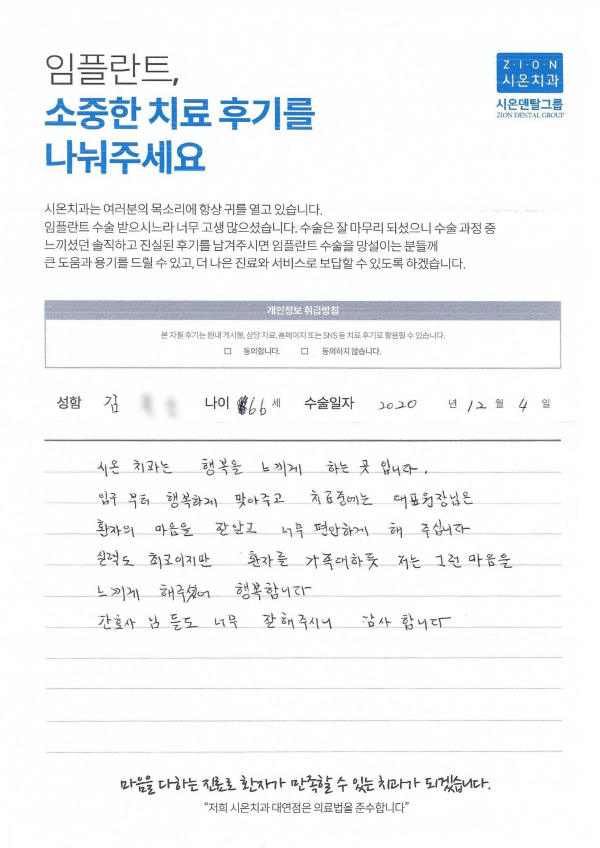 임플란트,
소중한 치료 후기를
나눠주세요
Z·I·O·N
시온치과
시온덴탈그룹
ZION DENTAL GROUP
시온치과는 여러분의 목소리에 항상 귀를 열고 있습니다.
임플란트 수술 받으시느라 너무 고생 많으셨습니다. 수술은 잘 마무리 되셨으니 수술 과정 중
느끼셨던 솔직하고 진실된 후기를 남겨주시면 임플란트 수술을 망설이는 분들께
큰 도움과 용기를 드릴 수 있고, 더 나은 진료와 서비스로 보답할 수 있도록 하겠습니다.
개인정보 취급방침
본 자필 후기는 원내 게시물, 상담 자료, 홈페이지 또는 SNS 등 치료 후기로 활용될 수 있습니다.
□ 동의합니다. □ 동의하지 않습니다.
성함 김 나이 66 세 수술일자 2020 년 12 월 4 일
시온 치과는 행복을 느끼게 하는 곳 입니다.
입구 부터 행복하게 맞아주고 치료중에는 대표원장님은
환자의 마음을 잘알고 너무 편안하게 해 주십니다
실력도 최고이지만 환자를 가족대하듯 저는 그런 마음을
느끼게 해주셨어 행복합니다
간호사 님 들도 너무 잘해주시니 감사 합니다
마음을 다하는 진료로 환자가 만족할 수 있는 치과가 되겠습니다.
"저희 시온치과 대연점은 의료법을 준수합니다"